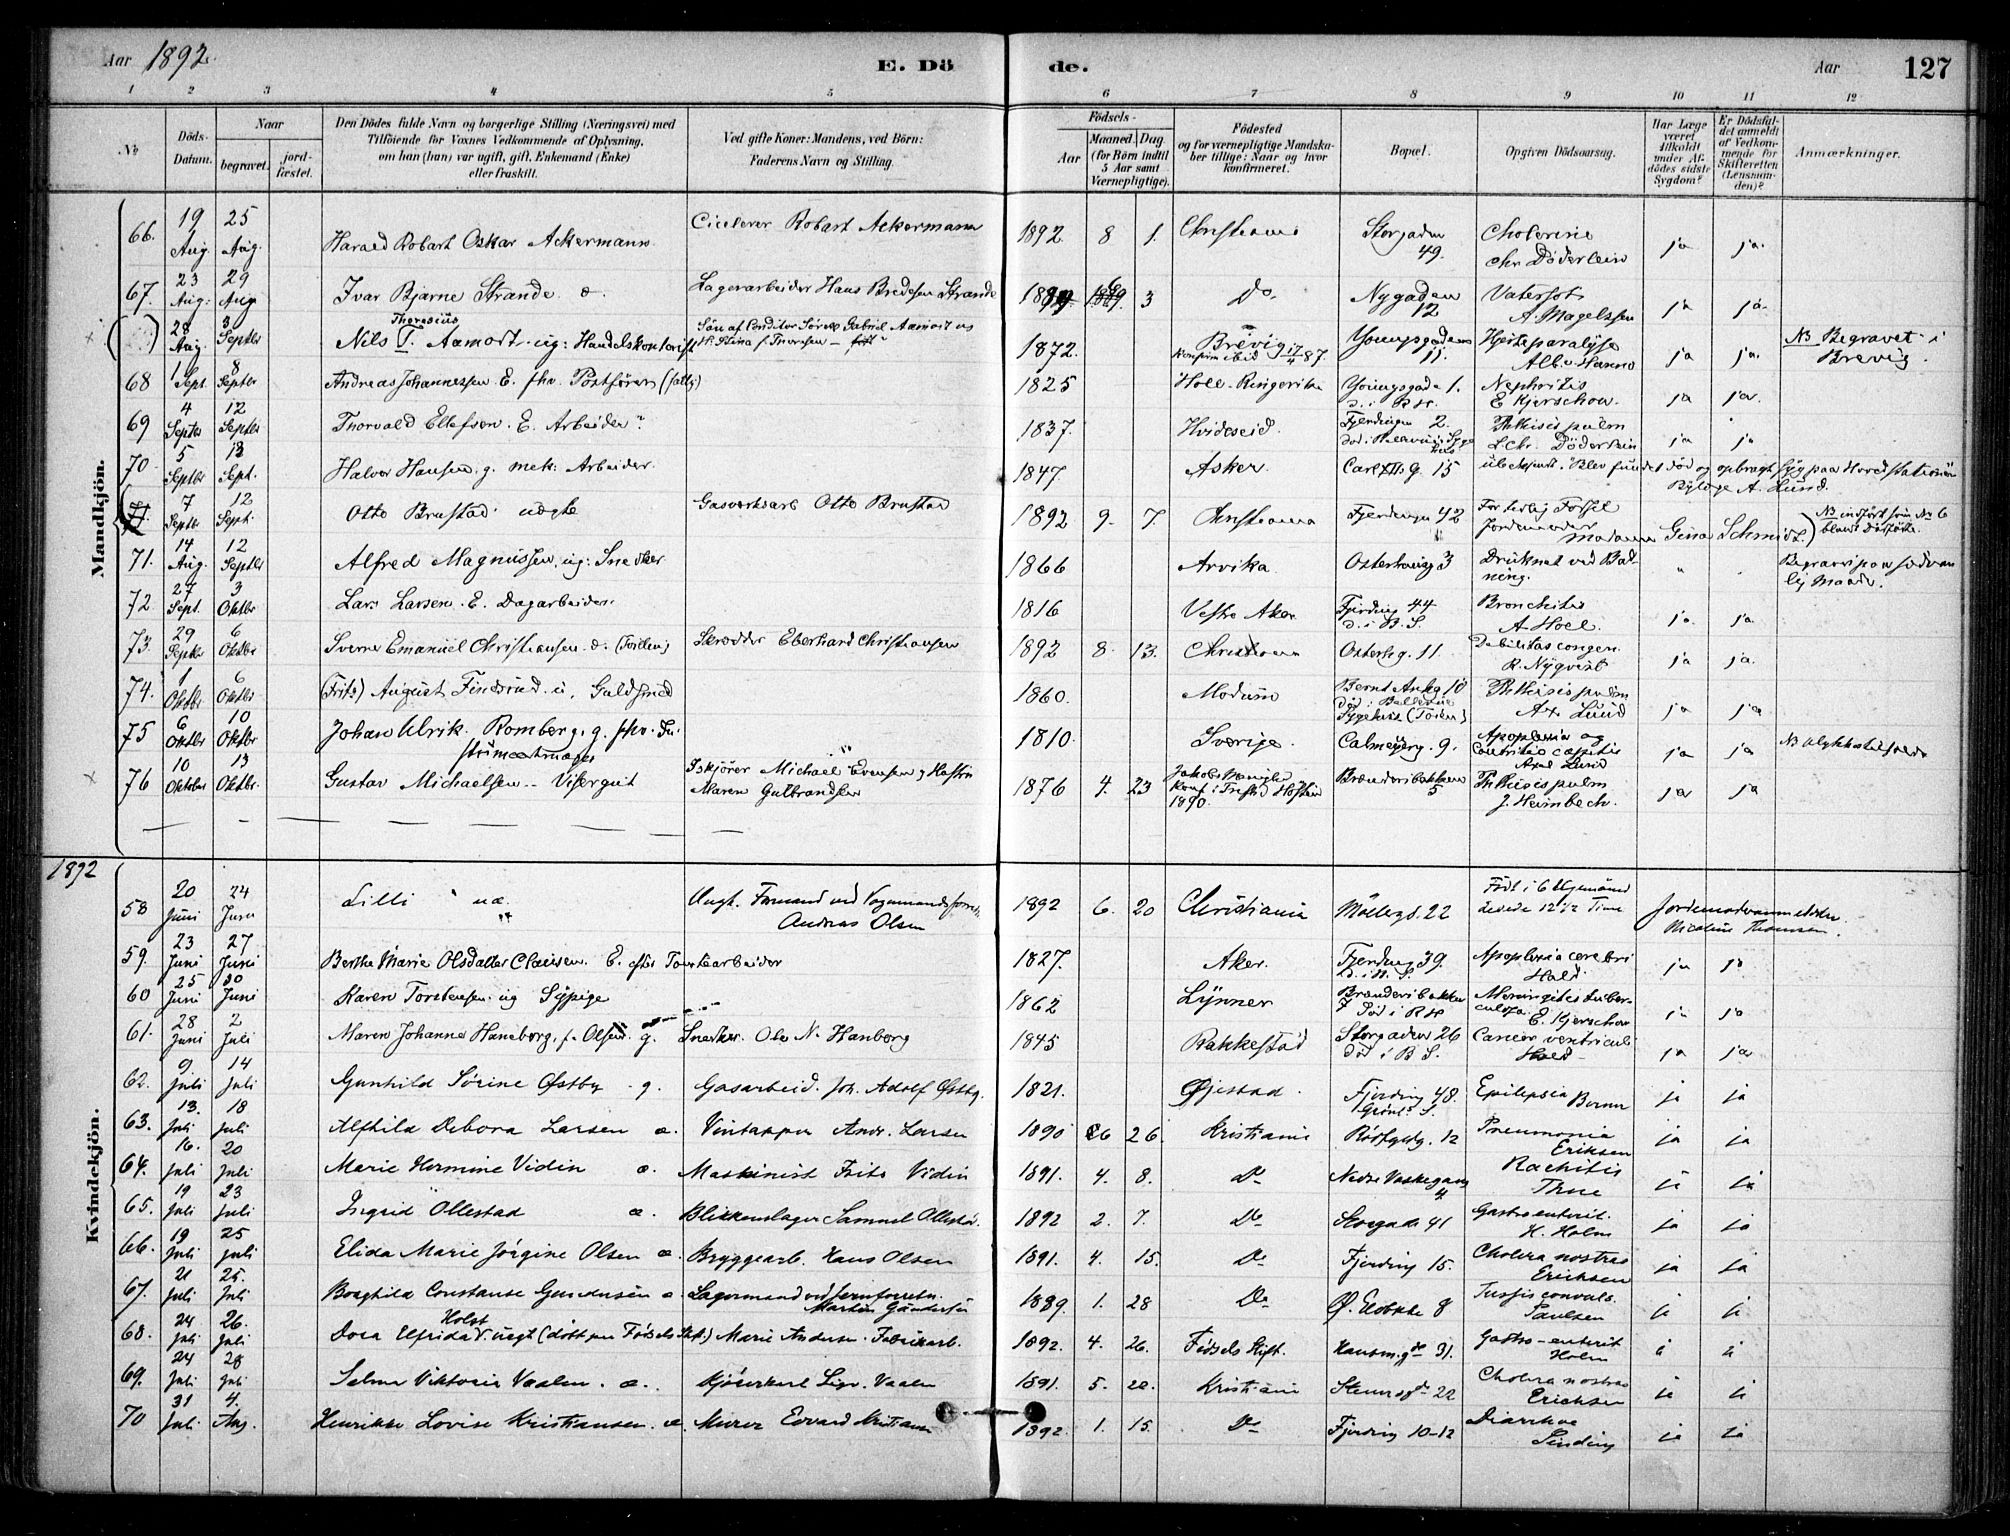 Aar 1892. E. Dö de. Aar 127
1 2 3 4 5 6 7 8 9 10 11 12
No
Döds-Datum.
Naar
begravet.
jord-fæstet.
Den Dödes fulde Navn og borgerlige Stilling (Næringsvei) med
Tilföiende for Voxnes Vedkommende af Oplysning,
om han (hun) var ugift, gift, Enkemand (Enke)
eller fraskilt.
Ved gifte Koner: Mandens, ved Börn:
Faderens Navn og Stilling.
Födsels-
Aar
Maaned. Dag.
(for Börn indtil
5 Aar samt
Værnepligtige).
Födested
og for værnepligtige Mandska-
ber tillige: Naar og hvor
konfirmeret.
Bopæl.
Opgiven Dödsaarsag.
Har Læge
været
tilkaldt
under Af-
dödes sidste
Sygdom?
Er Dödsfal-
det anmeldt
af Vedkom-
mende for
Skifteretten
(Lensman-
den)?
Anmærkninger.
Mandkjön.
66. 19 Aug. 25 Aug. Harald Robart Oskar Ackermann Robart Ackermann 1892 8 1. Christiania Storgaden 49. Cholerine Chr. Döderlein ja ja.
67. 23 Aug: 29 Aug Ivar Bjarne Strande Lagerarbeider Hans Bredesen Strande 3 Do Nygaden 12 A. Magelssen ja ja.
28 Aug 3 Septbr Nils T. Thoresius Aamodt ug: Handelskontorist Søn af Conditor Gabriel Aamodt 1872. Brevig 17/4 87. Youngsgaden 11. Hjerteparalyse Alb. Hanno ja ja. NB Begravet i Brevig.
68 1 Sept. 8 Septbr Andreas Johannessen. E. fhv. Postfører 1825 Hole Ringerike Youngsgade 1. d. i R.H. Nephritis E Kjerschow. ja ja.
69 4 Septbr 12 Septbr Thorvald Ellefsen. E. Arbeider 1837. Hvideseid. Fjerdingen 2. Phthisis pulm Chr. Döderlein ja ja
70. 5 Septbr 13 Sept. Halvor Hansen. g. mek: Arbeider. 1847. Asker. Carl XII g. 15 Blev fundet død og opbragt paa Hovedstationen A. Lund.
7 Septbr 12 Sept. Otto Brustad udgte Gasverksarb Otto Brustad 1892 9. 7. Christiania Fjerdingen 42 For tidlig Fødsel Jordemoder Madame Gina Schmidt. NB indført som No 6 blandt Dødfødte.
71. 14 Aug. 12 Septbr Alfred Magnussen. ug: Snedker 1866 Arvika. Osterhausg 3 Druknet ved Badning. " " Begravet paa sædvanlig Maade.
72. 27 Sept. 3 Oktbr Lars Larsen. E. Dagarbeider 1816 Vestre Aker Fjerding 44 d. i B. S. Bronchitis A Hoel. ja ja
73. 29 Septbr 6 Oktbr Sverre Emanuel Christiansen. Skrædder Eberhard Christiansen 1892 8. 13. Christiania Osterhg. 11. Debilitas congen. R. Nyqvist ja ja.
74. 1 Oktbr 6 Oktbr (Frits) August Findsrud. u. Guldsmed 1860. Modum Bernt Ankg 10 Phthisis pulm Ax Lund ja ja
75 6 Oktbr 10 Oktbr Johan Ulrik Romberg. g. fhv. Instrumentmager 1810. Sverige. Calmeyerg. 9. Apoplexia og capitis Axel Lund ja ja NB Ulykkestilfælde
76 10 Oktober 13 Oktbr. Gustav Michaelsen. Visergut Iskjører Michael Evensen og Hustru Maren Gulbrandsen 1876 4. 23 Konf i 1890. Brenneribakken 5 Phthisis pulm J. Heimbech. ja ja
1892
Kvindekjön.
58 20 Juni 24 Juni Lilli Andreas Olsen 1892 6. 20 Christiania Møllergd. 22 Født i 6 Ugemaaned Levede 12 1/2 Time Jordemoderanmeldelse Nicoline Thomesen.
59. 23 Juni 27 Juni Berthe Marie Olsdatter Clausen. E. efter 1827. Aker. Fjerding 39. Apoplexia cerebri Hald. ja ja
60 25 Juni 30 Juni Karen Torstensen. ug Sypige 1862 Lynner Brenneribakken 7 Död i RH Meningitis tuberculosa. E. Kjerschow ja ja
61. 28 Juni 2 Juli Maren Johanne Haneborg, f. Olsen. g. Snedker. Ole N. Hanborg 1845 Rakkestad Storgaden 26 Död i B. S. Cancer ventriculi Hald ja ja
62. 9. Juli 14 Juli Gunhild Sørine Østby g. Gasarbeid. Joh. Adolf Østby. 1821. Øjestad. Fjerding 48. Grønl. S. Epilepsia ja ja
63. 13. Juli 18 Juli Alfhild Debora Larsen æ. Vintapper Andr. Larsen 1890 6 26. Kristiania 12 Pneumonia Eriksen ja ja
64. 16. Juli 20 Juli Marie Hermine Vidin æ. Maskinist Frits Vidin 1891. 4. 8. Do Nedre Vaskegang 4 Rachitis Thue ja ja
65. 19 Juli 23 Juli Ingrid Ollestad æ. Blikkenslager Samuel Ollestad. 1892 2. 7. Do Storgade 41 Gastroenterit. H. Holm ja ja
66. 19 Juli 25 Juli Elida Marie Jørgine Olsen æ. Bryggearb. Hans Olsen 1891. 4. 15. Do Fjerding 15. Cholera nostras Eriksen ja ja
67. 21 Juli 25. Juli Borghild Constanse Gundersen æ Lagermand ved Jernforretn. Martin Gundersen 1889. 1. 28 Do 8 Tussis convuls. Paulsen ja ja
68. 24 Juli 26. Juli Dora Elfrida Holst uegt (døbt paa Fødselsstift.) Marie Andersen. Fabrikarb. 1892. 4. 26. Fødsels Stift. Hausm.gd 31. Gastro-enterit Holm ja ja
69. 24 Juli 28 Juli Selma Viktoria Vaalen. æ. Sigv. Vaalen 1891. 5. 20. Kristiania 22 Cholera nostras Erichsen ja ja
70 31 Juli 4. Aug. Henrikke Lovise Kristiansen. æ. Murer Edvard Kristiansen 1892. 1. 15. Do Fjerding 10-12 Diarrhoe Sinding ja ja